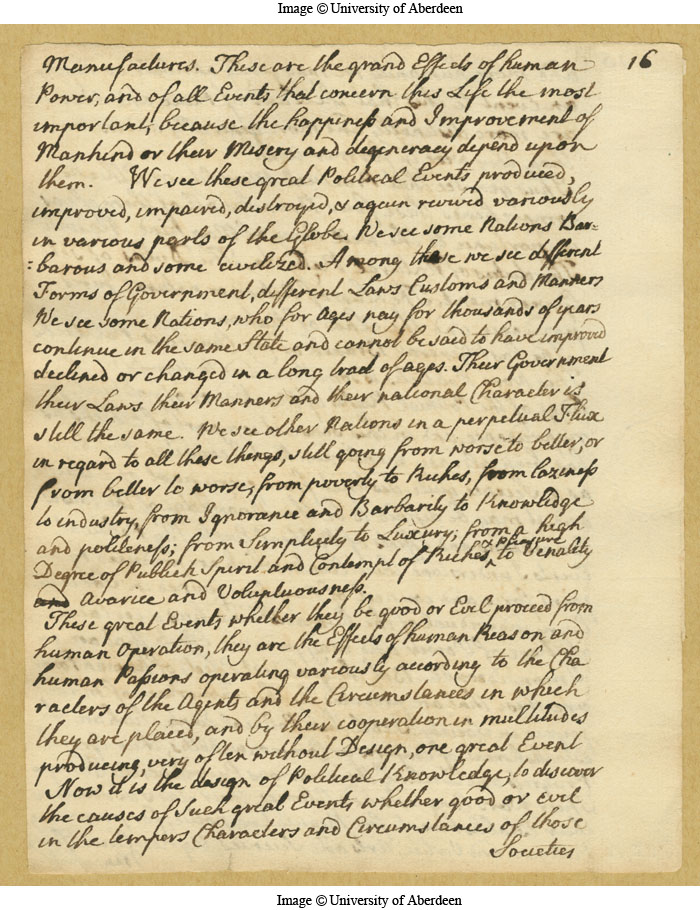 Image © University of Aberdeen
16
Manufactures. These are the grand Effects of human
Power, and of all Events that concern this Life the most
important, because the happiness and Improvement of
Mankind or their Misery and degeneracy depend upon
them. We see these great Political Events produced,
improved, impaired, distroyed, & again revived variously
in various parts of the Globe. We see some Nations Bar=
:barous and some civilized. Among these we see different
Forms of Government, different Laws Customs and Manners
We see some Nations, who for Ages nay for thousands of years
continue in the same State and cannot be said to have improved
declined or changed in a long tract of ages. Their Government
their Laws their Manners and their national Character is
still the same. We see other Nations in a perpetual Flux
in regard to all these things, still going from worse to better, or
from better to worse, from poverty to Riches, from laziness
to industry, from Ignorance and Barbarity to Knowledge
and politeness; from Simplicity to Luxury; from a high
Degree of Publick Spirit and Contempt of Riches & pleasure, to Venality
and Avarice and Voluptuousness.
These great Events whether they be good or Evil proceed from
human Operation, they are the Effects of human Reason and
human Passions operating variously according to the Cha
racters of the Agents and the Circumstances in which
they are placed, and by their cooperation in multitudes
producing, very often without Design, one great Event
Now it is the design of Political Knowledge, to discover
the causes of Such great Events whether good or evil
in the tempers Characters and Circumstances of those
Societies
Image © University of Aberdeen